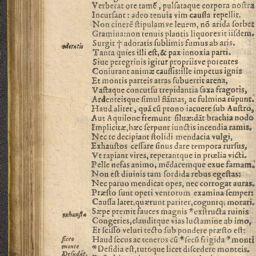 Verberat ore tamẽ, pulsataque corpora nostra
Incursant: adeo tenuis vim caussa repellit.
Non cinerẽ stipulam ve leuem, nõ arida sorbet
Gramina: non tenuis plantis liquor exit iisdem.
odoratis
Surgit † adoratis sublimis fumus ab aris.
Tanta quies illi est, & pax innoxia parti.
Siue peregrinis igitur propriisve potentes
Coniurant animæ caussis: ille impetus ignis
Et montis parteis atras subuerrit arenas,
Vastaque concursu trepidantia saxa fragoris,
Ardenteisque simul flãmas, ac fulmina rũpunt:
Haud aliter, quã cũ prono iacuere sub Austro,
Aut Aquilone fremunt siluæ: dãt brachia nodo
Implicitæ, hæc serpunt iunctis incendia ramis.
Nec te decipiant stolidi mendacia vulgi,
Exhaustos cessare sinus: dare tempora rursus,
Vt rapiant vires, repetantque in prœlia victi.
Pelle nefas animo, mẽdacemque exue famam.
Non est diuinis tam sordida rebus egestas:
Nec paruo mendicat opes, nec corrogat auras.
Præsto sunt operi ventorum examina semper:
Caussa latet, quærunt pariter, cogũtq; morari.
exhaustis
Sæpe premit fauces magnis *extructa ruinis
Congeries, clauditque vias luctamine ab imo,
Et scisso veluti tecto sub pondere præsto est:
ficro
monte
Haud secus ac teneros cũ *secũ frigida *monti
Desidet,
*Desidia est, tutoque licet discedere montes.